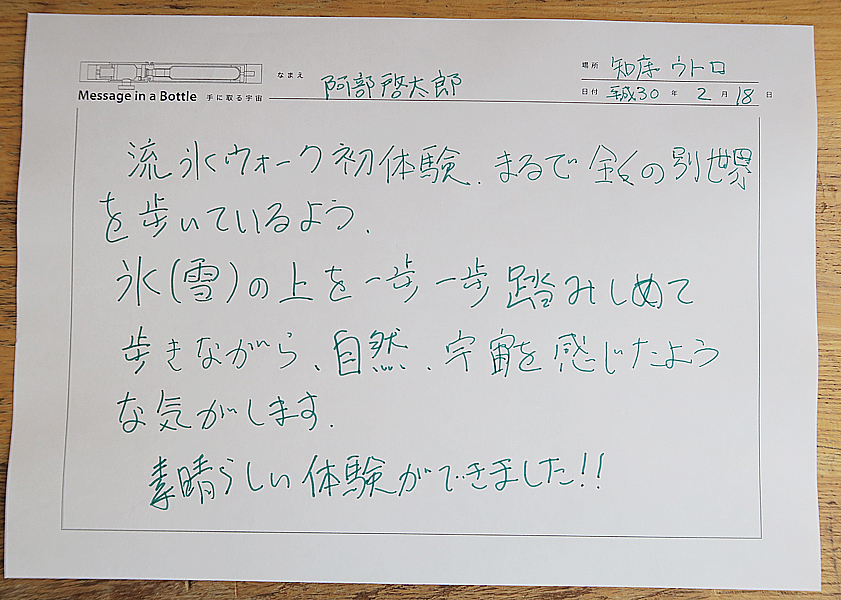 Message in a Bottle 手に取る宇宙
なまえ 阿部啓太郎
場所 知床 ウトロ
日付 平成30 年 2 月 18 日
流氷ウォーク初体験、まるで全くの別世界
を歩いているよう。
氷(雪)の上を一歩一歩踏みしめて
歩きながら、自然、宇宙を感じたよう
な気がします。
素晴らしい体験ができました!!